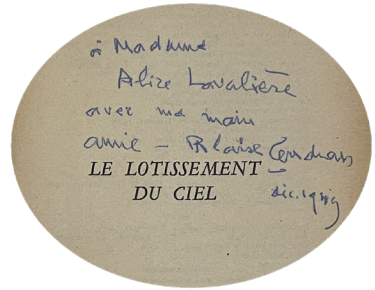 à Madame
Alice Lavalière
avec ma main
amie – Blaise Cendrars
LE LOTISSEMENT
DU CIEL
déc. 1949